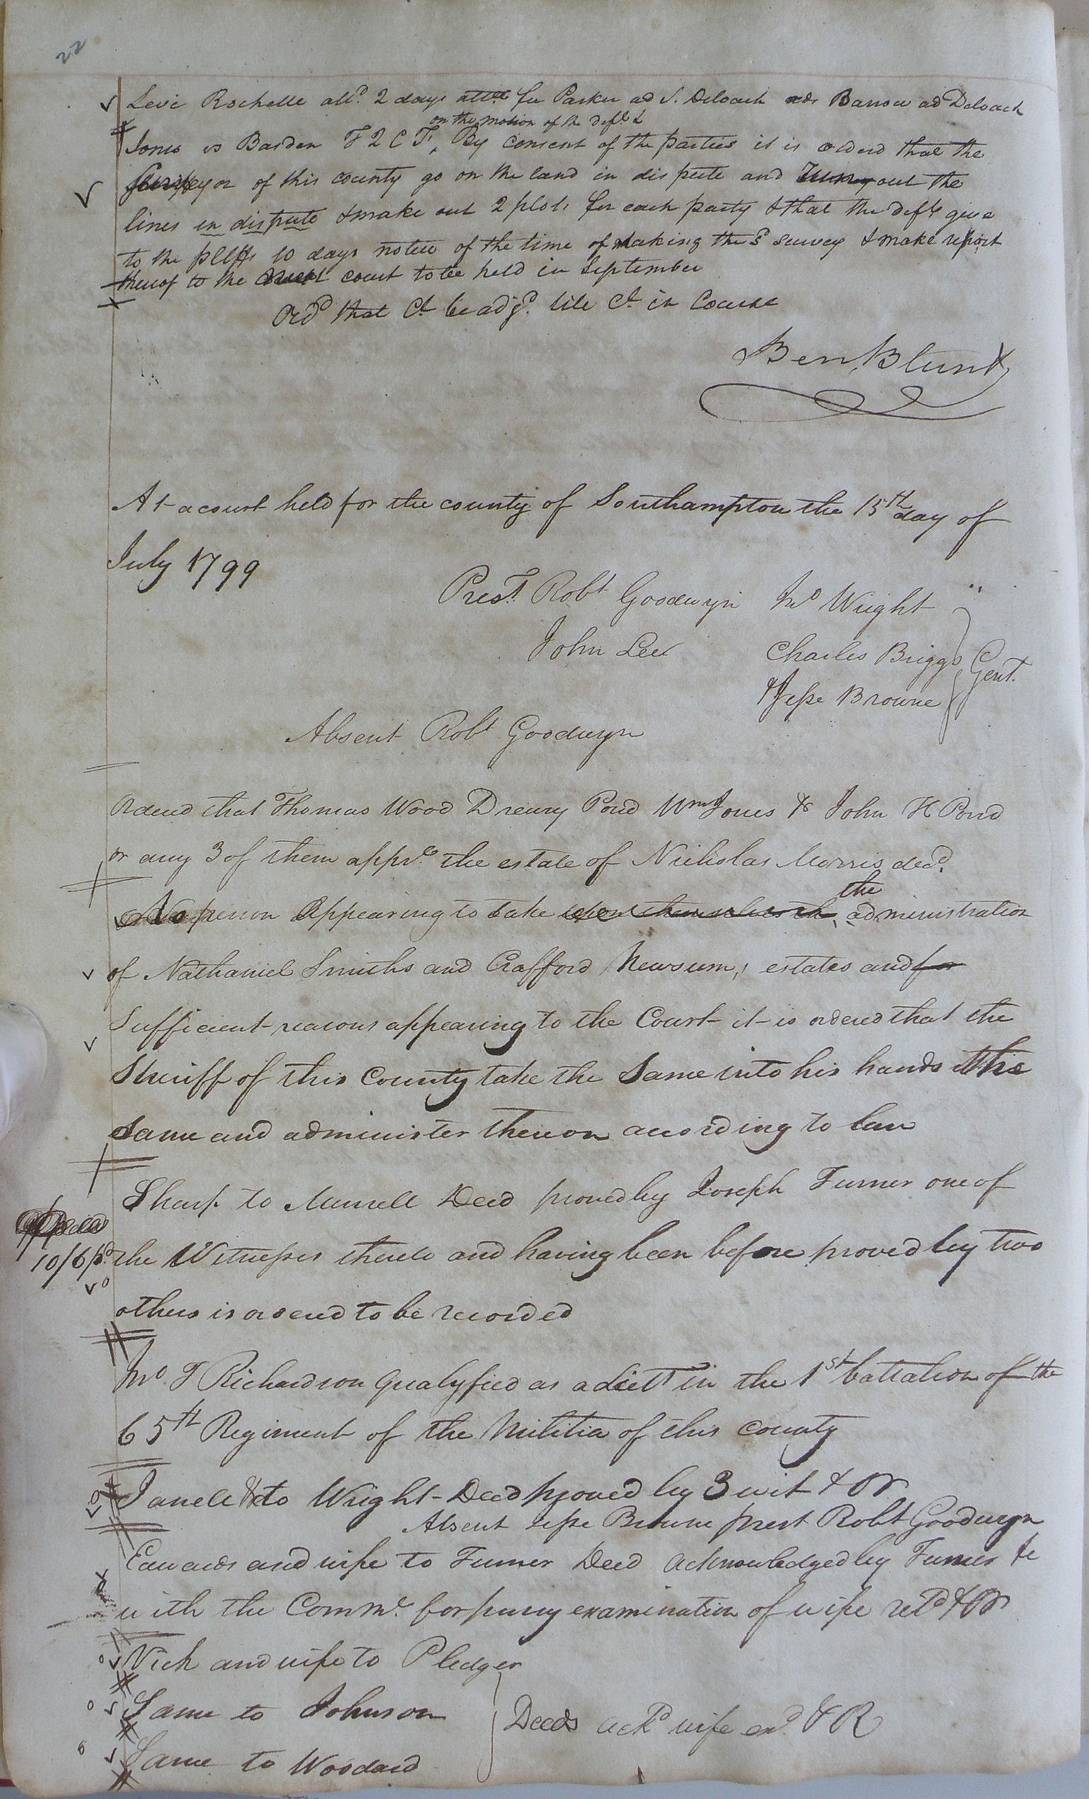 22
Levi Rochelle all.d 2 days att.ce for Parker ad S. Deloach ads Barrow ad Deloach
on the motion of the deft
Jones vs Barden F 2 C F, By consent of the parties it is orderd that the
surveyor of this county go on the land in dispute and out the
lines in dispute & make out 2 plots for each party & that the deft give
to the pltffs 10 days notice of the time of making the sd survey & make report
thereof to the court to be held in September
Ord that Ct be adjd. till Ct in Course
Ben, Blunt
At a court held for the county of Southampton the 15th day of
July 1799
Prest. Robt Goodwyn Jno Wright
John Lee Charles Briggs Gent.
& Jesse Browne
Absent Robt Goodwyn
Orderd that Thomas Wood Drewry Pond Wm Jones & John H Pond
or any 3 of them appre. the estate of Nicholas Morris decd.
the
No person Appearing to take upon themselves the administration
of Nathaniel Smiths and Crafford Newsum, estates and for
Sufficient reasons appearing to the Court it is ordered that the
Sheriff of this County take the Same into his hands the
Same and administer thereon according to law
Sharp to Murrell Deed proved by Joseph Turner one of
10/6 pd. the Witnesses thereto and having been before proved by two
others is orderd to be recorded
Jno T Richardson qualyfied as a Lieut in the 1st battalion of the
65th Regiment of the Militia of this county
to Wright Deed proved by 3 wit & Or
Absent Jesse Browne prest Robt Goodwyn
Edwards and wife to Turner Deed acknowledged by Turner &c
with the Comme. for privy examination of wife retd & Or
Vick and wife to Pledger
Same to Johnson Deeds ackd wife exd. & R
Same to Woodard